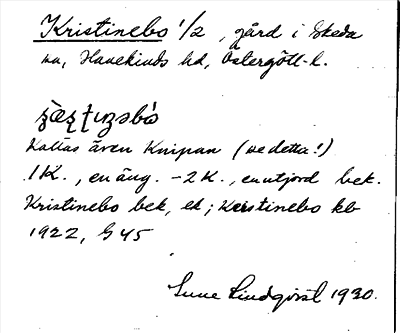 Kristinebo 1/2, gård i Skeda
sn, Hanekinds hd, Östergötl. l.
Kallas även Knipan (se detta!)
1 K., en äng. – 2 K., en utjord bek.
Kristinebo bek, ek; Kerstinebo kb
1922, G 45
Sune Lindqvist 1920.